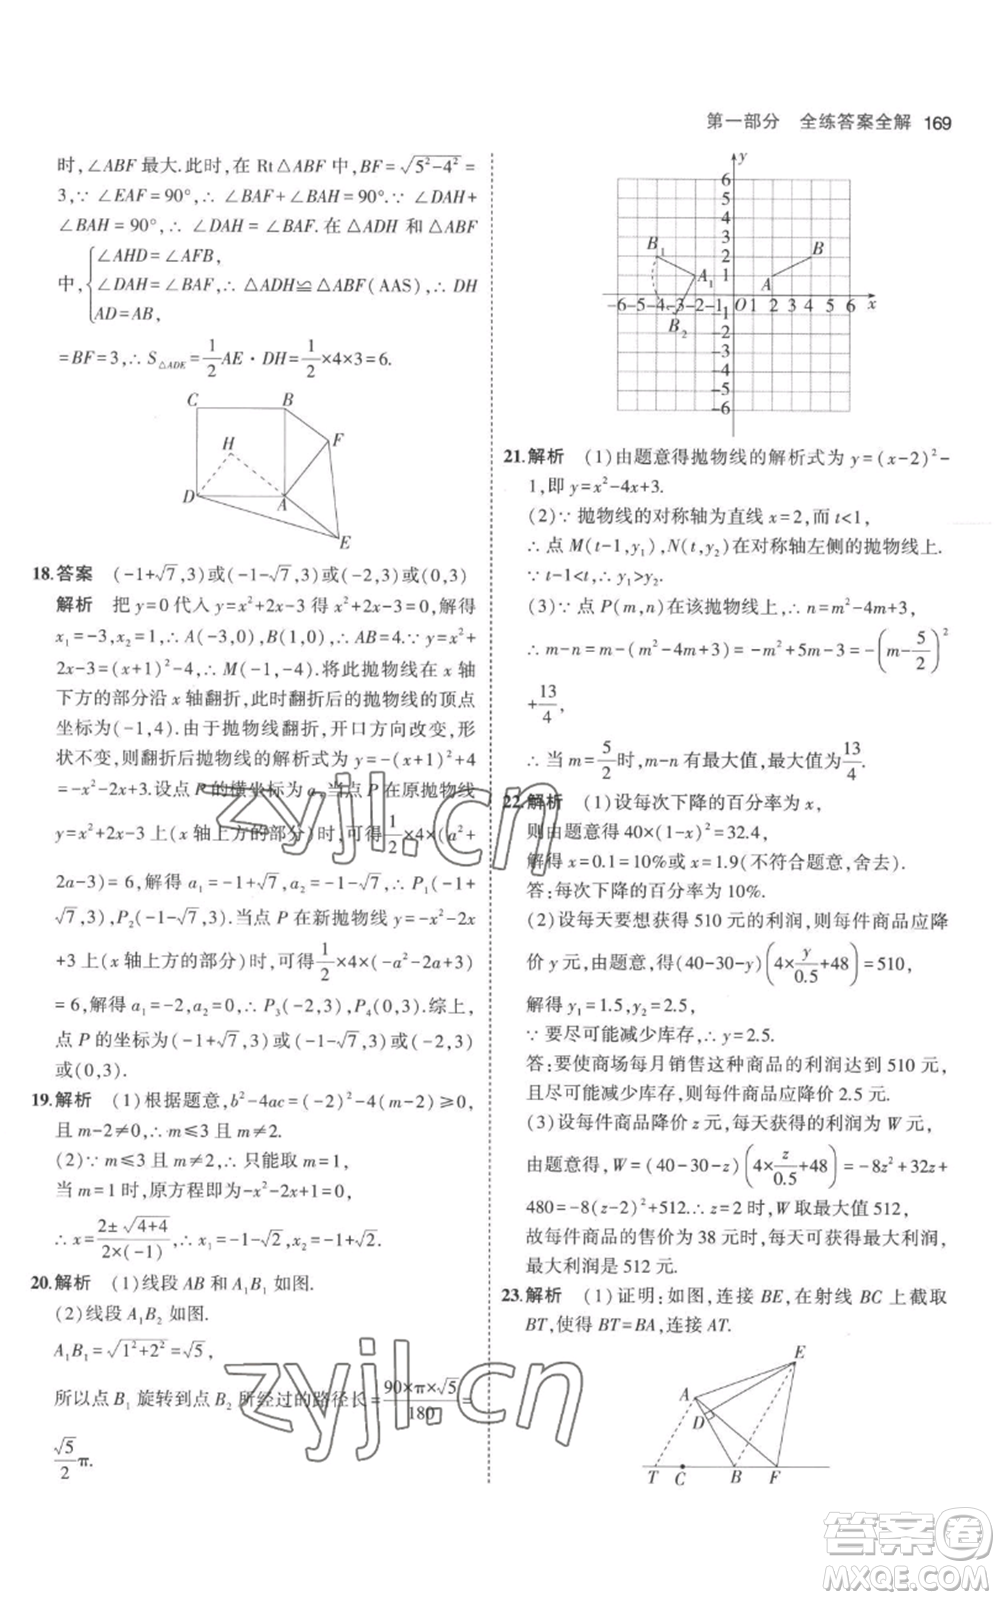 第一部分 全练答案全解 169
时,∠ABF 最大.此时,在 Rt△ABF 中,BF=√(5²-4²)=
3,∵ ∠EAF=90°,∴ ∠BAF+∠BAH=90°.∵ ∠DAH+
∠BAH=90°,∴ ∠DAH=∠BAF.在 △ADH 和 △ABF
中,{∠AHD=∠AFB,
∠DAH=∠BAF,∴ △ADH≌△ABF(AAS),∴ DH
AD=AB,
=BF=3,∴ S△ADE=1/2 AE·DH=1/2×4×3=6.
C B
H F
D A
E
18.答案 (-1+√7,3)或(-1-√7,3)或(-2,3)或(0,3)
解析 把 y=0 代入 y=x²+2x-3 得 x²+2x-3=0,解得
x₁=-3,x₂=1,∴ A(-3,0),B(1,0),∴ AB=4.∵ y=x²+
2x-3=(x+1)²-4,∴ M(-1,-4).将此抛物线在 x 轴
下方的部分沿 x 轴翻折,此时翻折后的抛物线的顶点
坐标为(-1,4).由于抛物线翻折,开口方向改变,形
状不变,则翻折后抛物线的解析式为 y=-(x+1)²+4
=-x²-2x+3.设点 P 的横坐标为 a,当点 P 在原抛物线
y=x²+2x-3 上(x 轴上方的部分)时,可得1/2×4×(a²+
2a-3)=6,解得 a₁=-1+√7,a₂=-1-√7,∴ P₁(-1+
√7,3),P₂(-1-√7,3).当点 P 在新抛物线 y=-x²-2x
+3 上(x 轴上方的部分)时,可得1/2×4×(-a²-2a+3)
=6,解得 a₁=-2,a₂=0,∴ P₃(-2,3),P₄(0,3).综上,
点 P 的坐标为(-1+√7,3)或(-1-√7,3)或(-2,3)
或(0,3).
19.解析 (1)根据题意,b²-4ac=(-2)²-4(m-2)≥0,
且 m-2≠0,∴ m≤3 且 m≠2.
(2)∵ m≤3 且 m≠2,∴ 只能取 m=1,
当 m=1 时,原方程即为-x²-2x+1=0,
∴ x=(2±√(4+4))/(2×(-1)),∴ x₁=-1-√2,x₂=-1+√2.
20.解析 (1)线段 AB 和 A₁B₁ 如图.
(2)线段 A₁B₂ 如图.
A₁B₁=√(1²+2²)=√5,
所以点 B₁ 旋转到点 B₂ 所经过的路径长=(90×π×√5)/180=
√5/2 π.
y
6
5
4
B₁ 3 B
2
A₁ 1 A
-6-5-4-3-2-1 O 1 2 3 4 5 6 x
B₂ -1
-2
-3
-4
-5
-6
21.解析 (1)由题意得抛物线的解析式为 y=(x-2)²-
1,即 y=x²-4x+3.
(2)∵ 抛物线的对称轴为直线 x=2,而 t<1,
∴ 点 M(t-1,y₁),N(t,y₂)在对称轴左侧的抛物线上.
∵ t-1<t,∴ y₁>y₂.
(3)∵ 点 P(m,n)在该抛物线上,∴ n=m²-4m+3,
∴ m-n=m-(m²-4m+3)=-m²+5m-3=-(m-5/2)²
+13/4,
∴ 当 m=5/2时,m-n 有最大值,最大值为13/4.
22.解析 (1)设每次下降的百分率为 x,
则由题意得 40×(1-x)²=32.4,
解得 x=0.1=10%或 x=1.9(不符合题意,舍去).
答:每次下降的百分率为 10%.
(2)设每天要想获得 510 元的利润,则每件商品应降
价 y 元,由题意,得(40-30-y)(4×y/0.5+48)=510,
解得 y₁=1.5,y₂=2.5.
∵ 要尽可能减少库存,∴ y=2.5.
答:要使商场每月销售这种商品的利润达到 510 元,
且尽可能减少库存,每件商品应降价 2.5 元.
(3)设每件商品降价 z 元,每天获得的利润为 W 元,
由题意得,W=(40-30-z)(4×z/0.5+48)=-8z²+32z+
480=-8(z-2)²+512.∴ z=2 时,W 取最大值 512,
故每件商品的售价为 38 元时,每天可获得最大利润,
最大利润是 512 元.
23.解析 (1)证明:如图,连接 BE,在射线 BC 上截取
BT,使得 BT=BA,连接 AT.
E
A
D
T C B F
zyjl.cn
zyjl.cn
答案卷
MXQE.COM